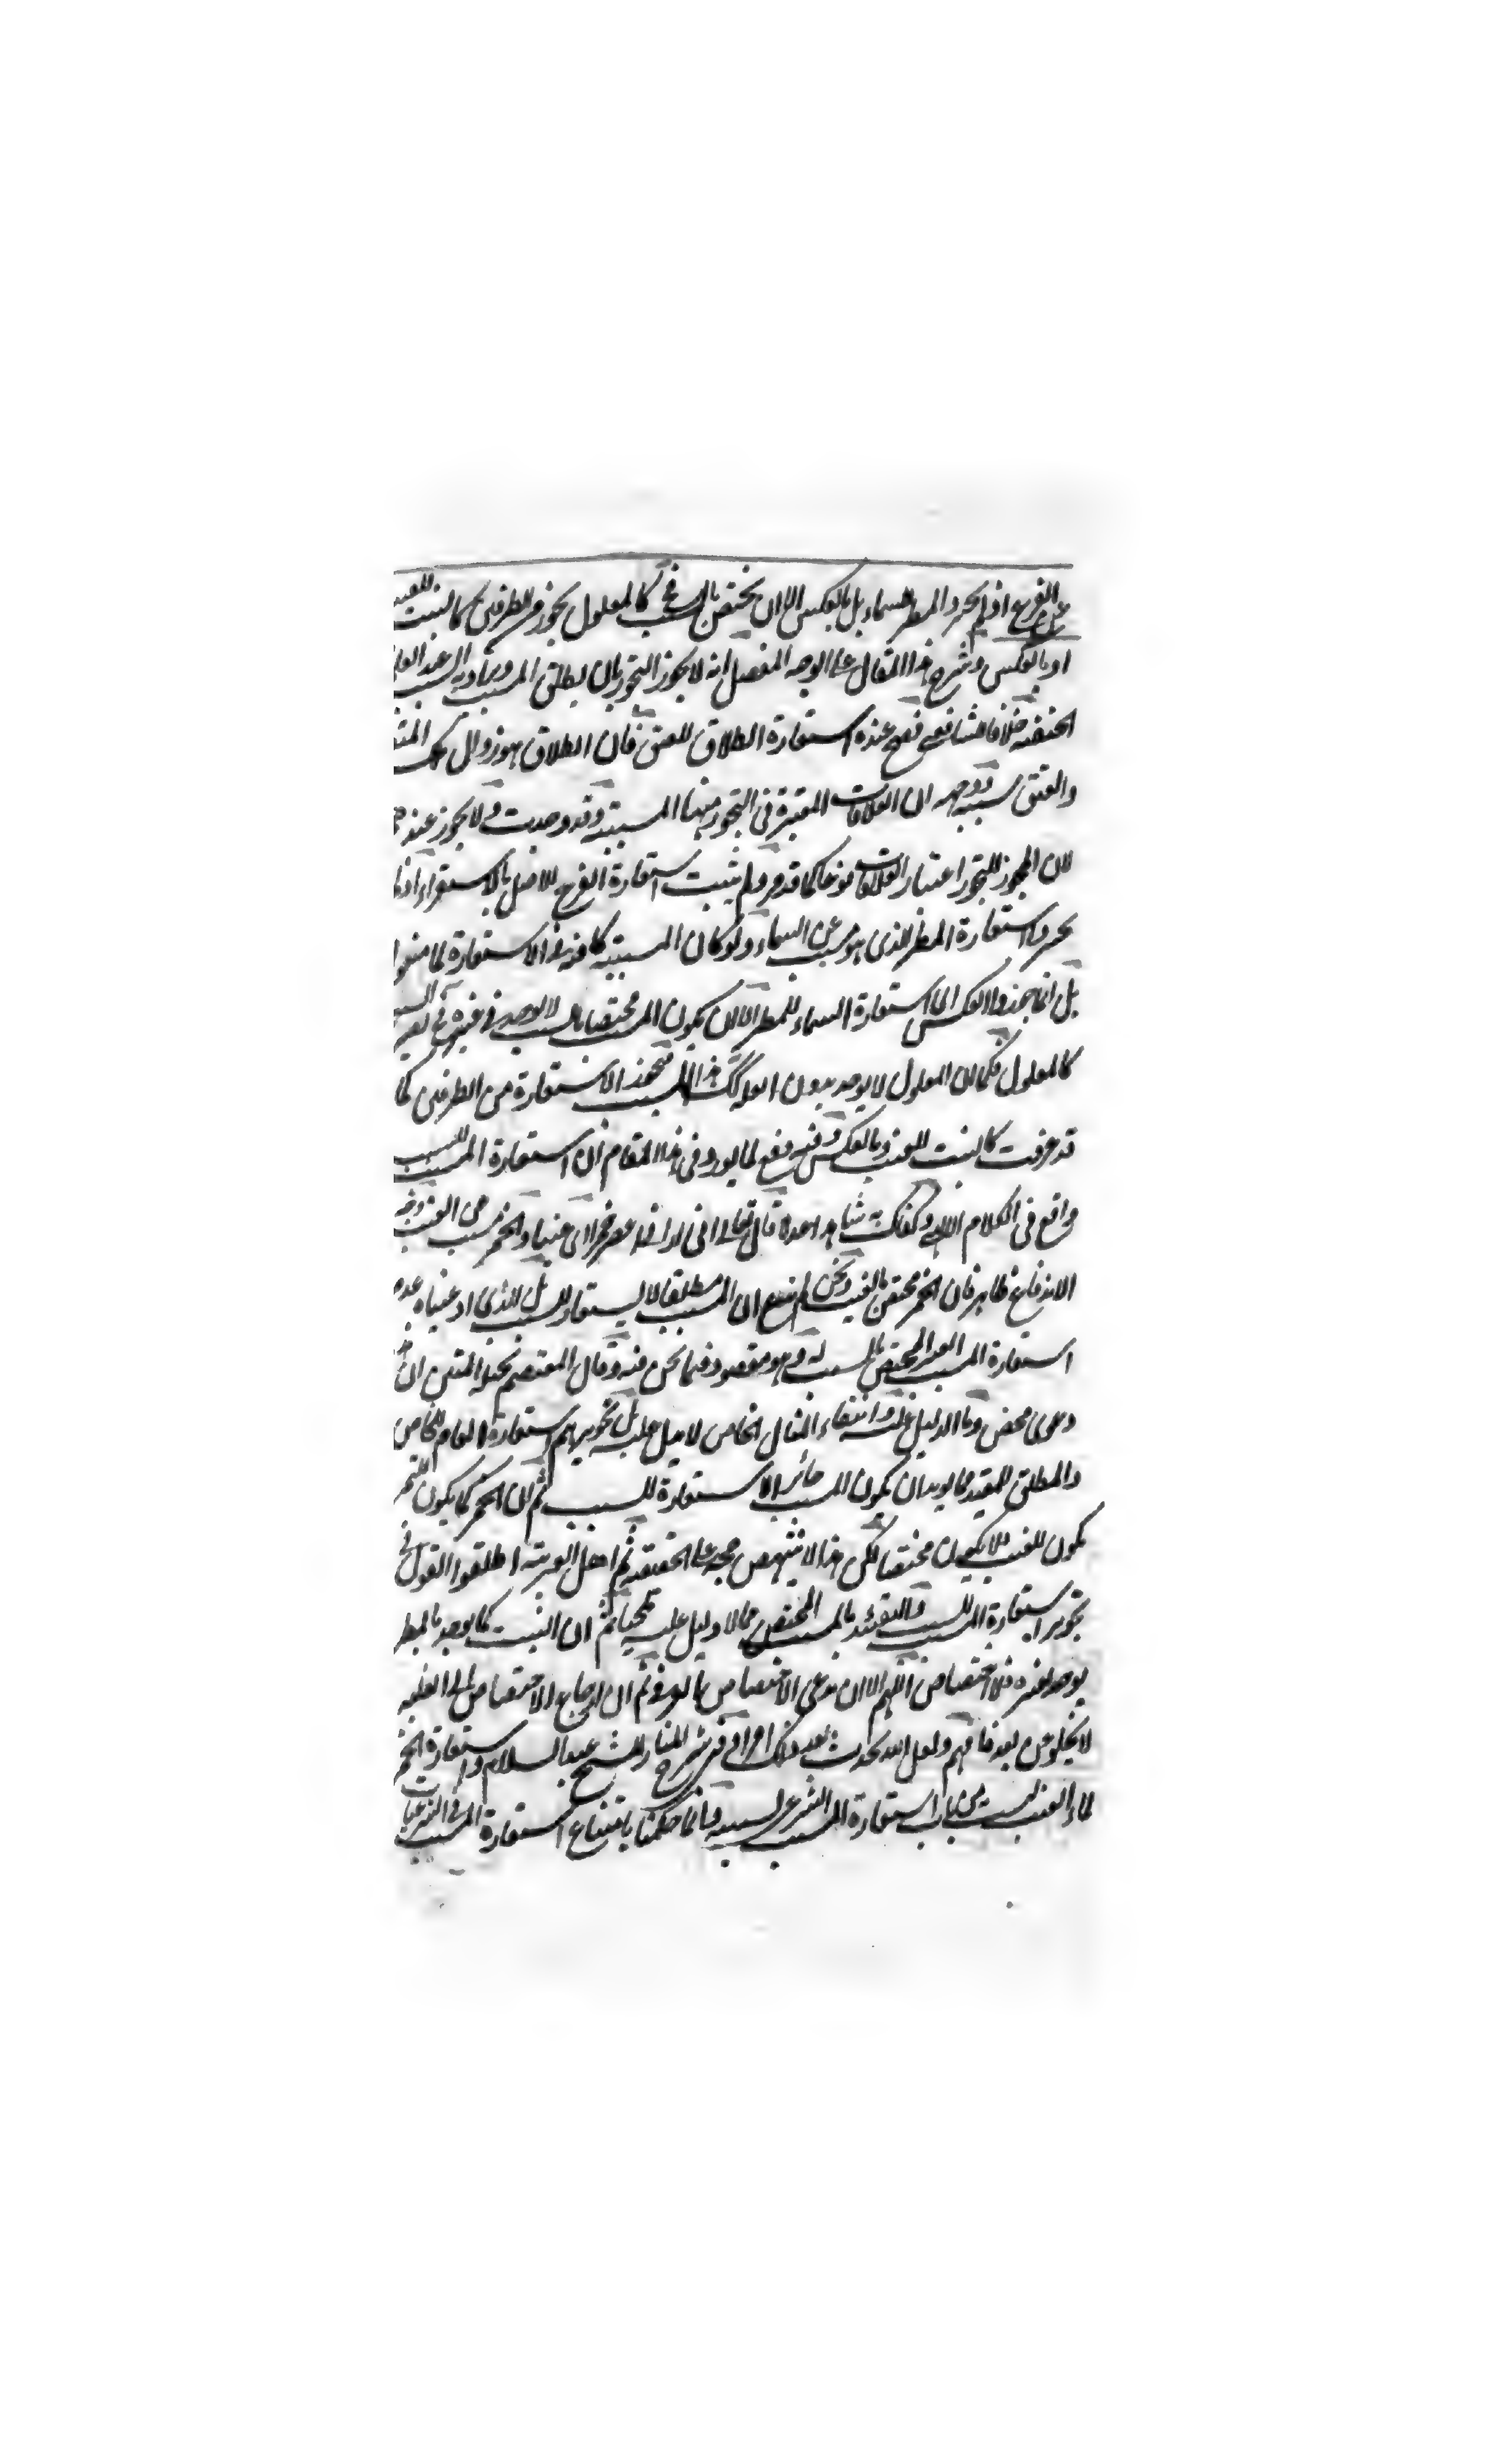 على الفرع اذ لم يجز المطر للسماء بل بالعكس الا ان يختص بالسبب فح كالمعلول يجوز من الطرفين كالنبت للغيث
او بالعكس وشرح هذا المقال على الوجه المفصل انه لا يجوز التجوز بان يطلق المسبب ويراد به السبب عند
الحنفية خلافا للشافعي فصح عنده استعارة الطلاق للعتق فان الطلاق هو زوال ملك
والعتق سببه ووجهه ان العلاقات المعتبرة في التجوز منها المسببية وقد وجدت ولا يجوز عندهم
لان المجوز للتجوز اعتبار العلاقات نوعا كما قد مر ولم يثبت استعارة الفرع للاصل بالاستقراء اذ لم
يجز استعارة المطر الذي هو مسبب عن السماء ولو كان المسببية كافية في الاستعارة لما منعوا
بل انما جوزوا العكس اي استعارة السماء للمطر الا ان يكون المسبب مختصا بالسبب لا يوجد في غيره فح يصير
كالمعلول فكما ان المعلول لا يوجد بدون العلة كك هذا المسبب فيجوز الاستعارة من الطرفين كما
قد عرفت كالنبت للغيث وبالعكس وفيه دفع لما يورد في هذا المقام ان استعارة المسبب للسبب
واقع في الكلام الالهي وكفاك به شاهدا عدلا قال تعالى اني اراني اعصر خمرا اي عنبا والخمر مسبب من العنب وجه
الاندفاع ظاهر فان الخمر مختص بالعنب ونحن لم نمنع ان المسبب مطلقا لا يستعار للسبب بل الذي ادعيناه عدم
استعارة المسبب الغير المختص بالسبب له وهو مقصود فيما نحن فيه وقال المعتصم بحبل الله المتين ان
دعوى محض وما الدليل عليه وانتفاء المثال الخاص لا يدل عليه بل تجويزهم استعارة العام للخاص
والمطلق للمقيد مما يؤيد ان يكون المسبب جائز الاستعارة للسبب ثم ان الخمر كما يكون للتمر
يكون للعنب فلا يكون مختصا لكن هذا لا ينتهض حجة على الحنفية ثم اهل العربية اطلقوا القول في
تجويز استعارة المسبب للسبب والتقييد بالمسبب المختص مما لا دليل عليه ثم ان النبت كما يوجد بالمطر
يوجد لغيره فلا اختصاص اللهم الا ان يدعى الاختصاص بالعرف ثم ان ارجاع الاختصاص الى العلية
لا يخلو عن بعد فافهم ولعل الله يحدث بعد ذلك امرا في شرح المنار للشيخ عبد السلام واستعارة الخمر
لماء العنب ليست من باب استعارة المسبب الشرعي لسببه وانما حكمنا بامتناع استعارة المسبب في الشرعيات